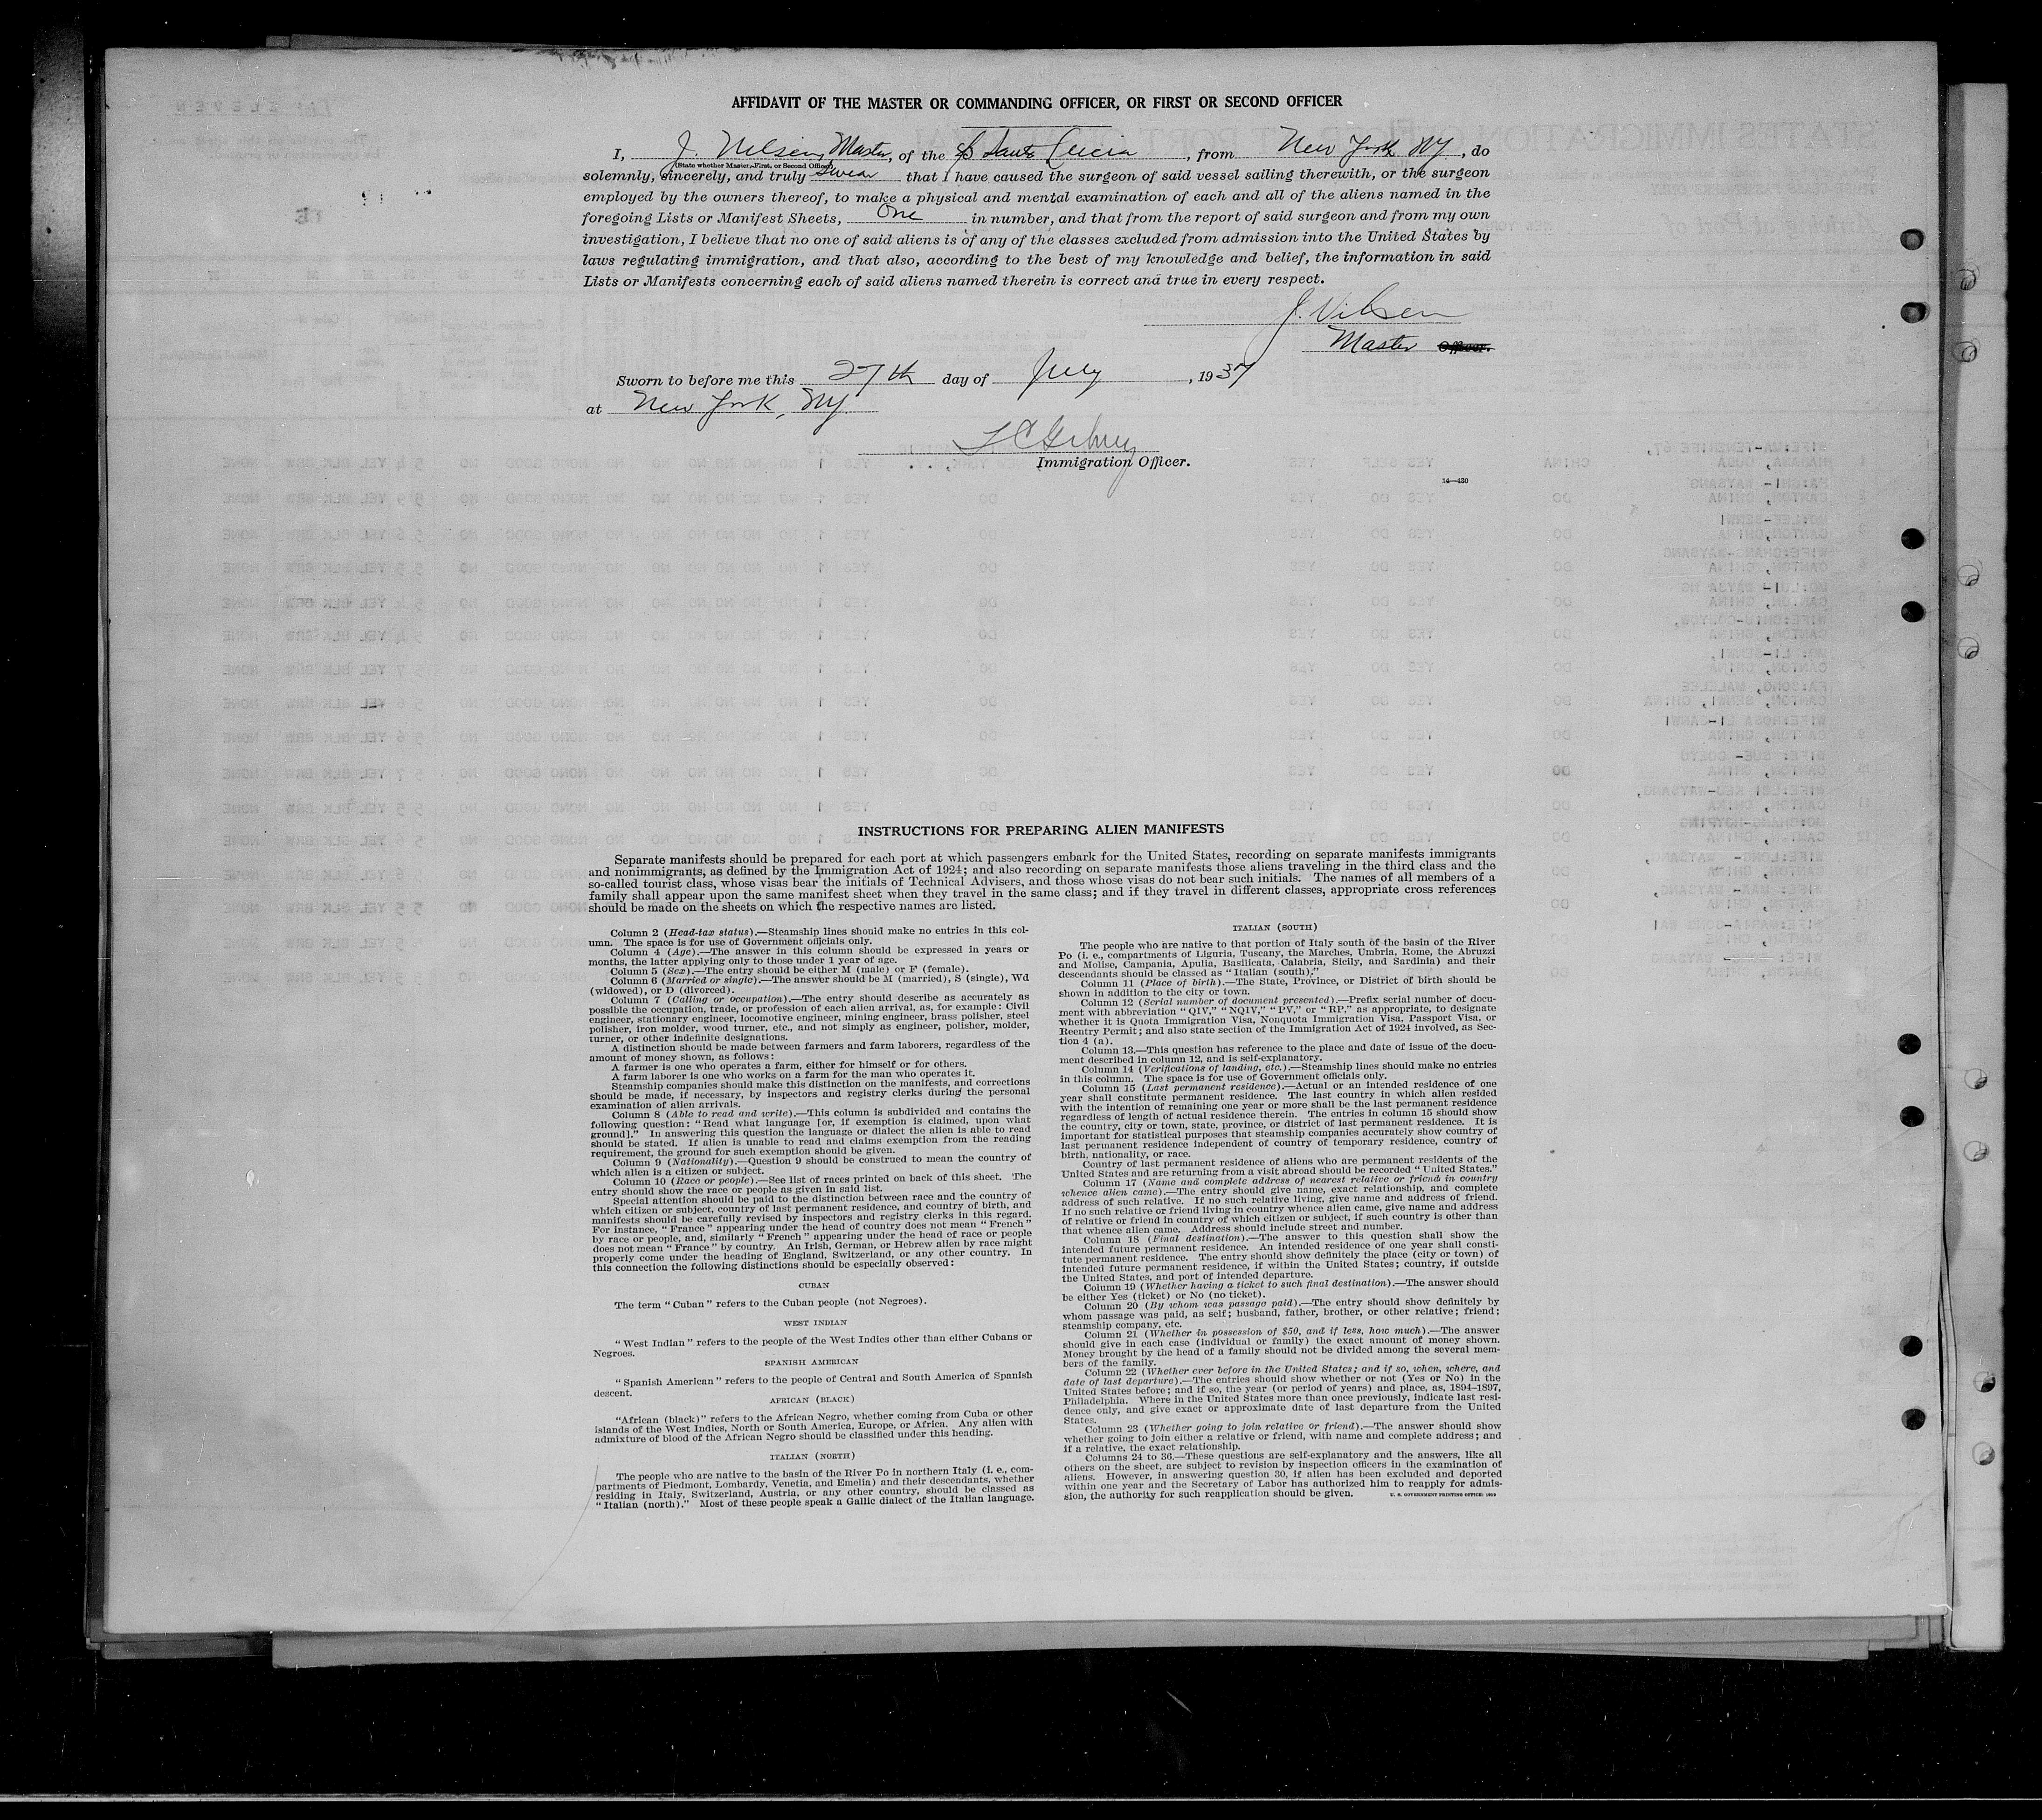 AFFIDAVIT OF THE MASTER OR COMMANDING OFFICER, OR FIRST OR SECOND OFFICER
I, J. Nelsen, Master, of the SS Santa Lucia, from New York NY, do
(State whether Master, First, or Second Officer)
solemnly, sincerely, and truly swear that I have caused the surgeon of said vessel sailing therewith, or the surgeon
employed by the owners thereof, to make a physical and mental examination of each and all of the aliens named in the
foregoing Lists or Manifest Sheets, One in number, and that from the report of said surgeon and from my own
investigation, I believe that no one of said aliens is of any of the classes excluded from admission into the United States by
laws regulating immigration, and that also, according to the best of my knowledge and belief, the information in said
Lists or Manifests concerning each of said aliens named therein is correct and true in every respect.
J. Nilsen
Master Officer.
Sworn to before me this 27th day of July, 1937
at New York, NY.
Immigration Officer.
14—430
INSTRUCTIONS FOR PREPARING ALIEN MANIFESTS
Separate manifests should be prepared for each port at which passengers embark for the United States, recording on separate manifests immigrants
and nonimmigrants, as defined by the Immigration Act of 1924; and also recording on separate manifests those aliens traveling in the third class and the
so-called tourist class, whose visas bear the initials of Technical Advisers, and those whose visas do not bear such initials. The names of all members of a
family shall appear upon the same manifest sheet when they travel in the same class; and if they travel in different classes, appropriate cross references
should be made on the sheets on which the respective names are listed.
Column 2 (Head-tax status).—Steamship lines should make no entries in this col-
umn. The space is for use of Government officials only.
Column 4 (Age).—The answer in this column should be expressed in years or
months, the latter applying only to those under 1 year of age.
Column 5 (Sex).—The entry should be either M (male) or F (female).
Column 6 (Married or single).—The answer should be M (married), S (single), Wd
(widowed), or D (divorced).
Column 7 (Calling or occupation).—The entry should describe as accurately as
possible the occupation, trade, or profession of each alien arrival, as, for example: Civil
engineer, stationary engineer, locomotive engineer, mining engineer, brass polisher, steel
polisher, iron molder, wood turner, etc., and not simply as engineer, polisher, molder,
turner, or other indefinite designations.
A distinction should be made between farmers and farm laborers, regardless of the
amount of money shown, as follows:
A farmer is one who operates a farm, either for himself or for others.
A farm laborer is one who works on a farm for the man who operates it.
Steamship companies should make this distinction on the manifests, and corrections
should be made, if necessary, by inspectors and registry clerks during the personal
examination of alien arrivals.
Column 8 (Able to read and write).—This column is subdivided and contains the
following question: "Read what language [or, if exemption is claimed, upon what
ground]." In answering this question the language or dialect the alien is able to read
should be stated. If alien is unable to read and claims exemption from the reading
requirement, the ground for such exemption should be given.
Column 9 (Nationality).—Question 9 should be construed to mean the country of
which alien is a citizen or subject.
Column 10 (Race or people).—See list of races printed on back of this sheet. The
entry should show the race or people as given in said list.
Special attention should be paid to the distinction between race and the country of
which citizen or subject, country of last permanent residence, and country of birth, and
manifests should be carefully revised by inspectors and registry clerks in this regard.
For instance, "France" appearing under the head of country does not mean "French"
by race or people, and, similarly "French" appearing under the head of race or people
does not mean "France" by country. An Irish, German, or Hebrew alien by race might
properly come under the heading of England, Switzerland, or any other country. In
this connection the following distinctions should be especially observed:
CUBAN
The term "Cuban" refers to the Cuban people (not Negroes).
WEST INDIAN
"West Indian" refers to the people of the West Indies other than either Cubans or
Negroes.
SPANISH AMERICAN
"Spanish American" refers to the people of Central and South America of Spanish
descent.
AFRICAN (BLACK)
"African (black)" refers to the African Negro, whether coming from Cuba or other
islands of the West Indies, North or South America, Europe, or Africa. Any alien with
admixture of blood of the African Negro should be classified under this heading.
ITALIAN (NORTH)
The people who are native to the basin of the River Po in northern Italy (i. e., com-
partments of Piedmont, Lombardy, Venetia, and Emelia) and their descendants, whether
residing in Italy, Switzerland, Austria, or any other country, should be classed as
"Italian (north)." Most of these people speak a Gallic dialect of the Italian language.
ITALIAN (SOUTH)
The people who are native to that portion of Italy south of the basin of the River
Po (i. e., compartments of Liguria, Tuscany, the Marches, Umbria, Rome, the Abruzzi
and Molise, Campania, Apulia, Basilicata, Calabria, Sicily, and Sardinia) and their
descendants should be classed as "Italian (south)."
Column 11 (Place of birth).—The State, Province, or District of birth should be
shown in addition to the city or town.
Column 12 (Serial number of document presented).—Prefix serial number of docu-
ment with abbreviation "QIV," "NQIV," "PV," or "RP," as appropriate, to designate
whether it is Quota Immigration Visa, Nonquota Immigration Visa, Passport Visa, or
Reentry Permit; and also state section of the Immigration Act of 1924 involved, as Sec-
tion 4 (a).
Column 13.—This question has reference to the place and date of issue of the docu-
ment described in column 12, and is self-explanatory.
Column 14 (Verifications of landing, etc.).—Steamship lines should make no entries
in this column. The space is for use of Government officials only.
Column 15 (Last permanent residence).—Actual or an intended residence of one
year shall constitute permanent residence. The last country in which alien resided
with the intention of remaining one year or more shall be the last permanent residence
regardless of length of actual residence therein. The entries in column 15 should show
the country, city or town, state, province, or district of last permanent residence. It is
important for statistical purposes that steamship companies accurately show country of
last permanent residence independent of country of temporary residence, country of
birth, nationality, or race.
Country of last permanent residence of aliens who are permanent residents of the
United States and are returning from a visit abroad should be recorded "United States."
Column 17 (Name and complete address of nearest relative or friend in country
whence alien came).—The entry should give name, exact relationship, and complete
address of such relative. If no such relative living, give name and address of friend.
If no such relative or friend living in country whence alien came, give name and address
of relative or friend in country of which citizen or subject, if such country is other than
that whence alien came. Address should include street and number.
Column 18 (Final destination).—The answer to this question shall show the
intended future permanent residence. An intended residence of one year shall consti-
tute permanent residence. The entry should show definitely the place (city or town) of
intended future permanent residence, if within the United States; country, if outside
the United States, and port of intended departure.
Column 19 (Whether having a ticket to such final destination).—The answer should
be either Yes (ticket) or No (no ticket).
Column 20 (By whom was passage paid).—The entry should show definitely by
whom passage was paid, as self; husband, father, brother, or other relative; friend;
steamship company, etc.
Column 21 (Whether in possession of $50, and if less, how much).—The answer
should give in each case (individual or family) the exact amount of money shown.
Money brought by the head of a family should not be divided among the several mem-
bers of the family.
Column 22 (Whether ever before in the United States; and if so, when, where, and
date of last departure).—The entries should show whether or not (Yes or No) in the
United States before; and if so, the year (or period of years) and place, as, 1894–1897,
Philadelphia. Where in the United States more than once previously, indicate last resi-
dence only, and give exact or approximate date of last departure from the United
States.
Column 23 (Whether going to join relative or friend).—The answer should show
whether going to join either a relative or friend, with name and complete address; and
if a relative, the exact relationship.
Columns 24 to 36.—These questions are self-explanatory and the answers, like all
others on the sheet, are subject to revision by inspection officers in the examination of
aliens. However, in answering question 30, if alien has been excluded and deported
within one year and the Secretary of Labor has authorized him to reapply for admis-
sion, the authority for such reapplication should be given.